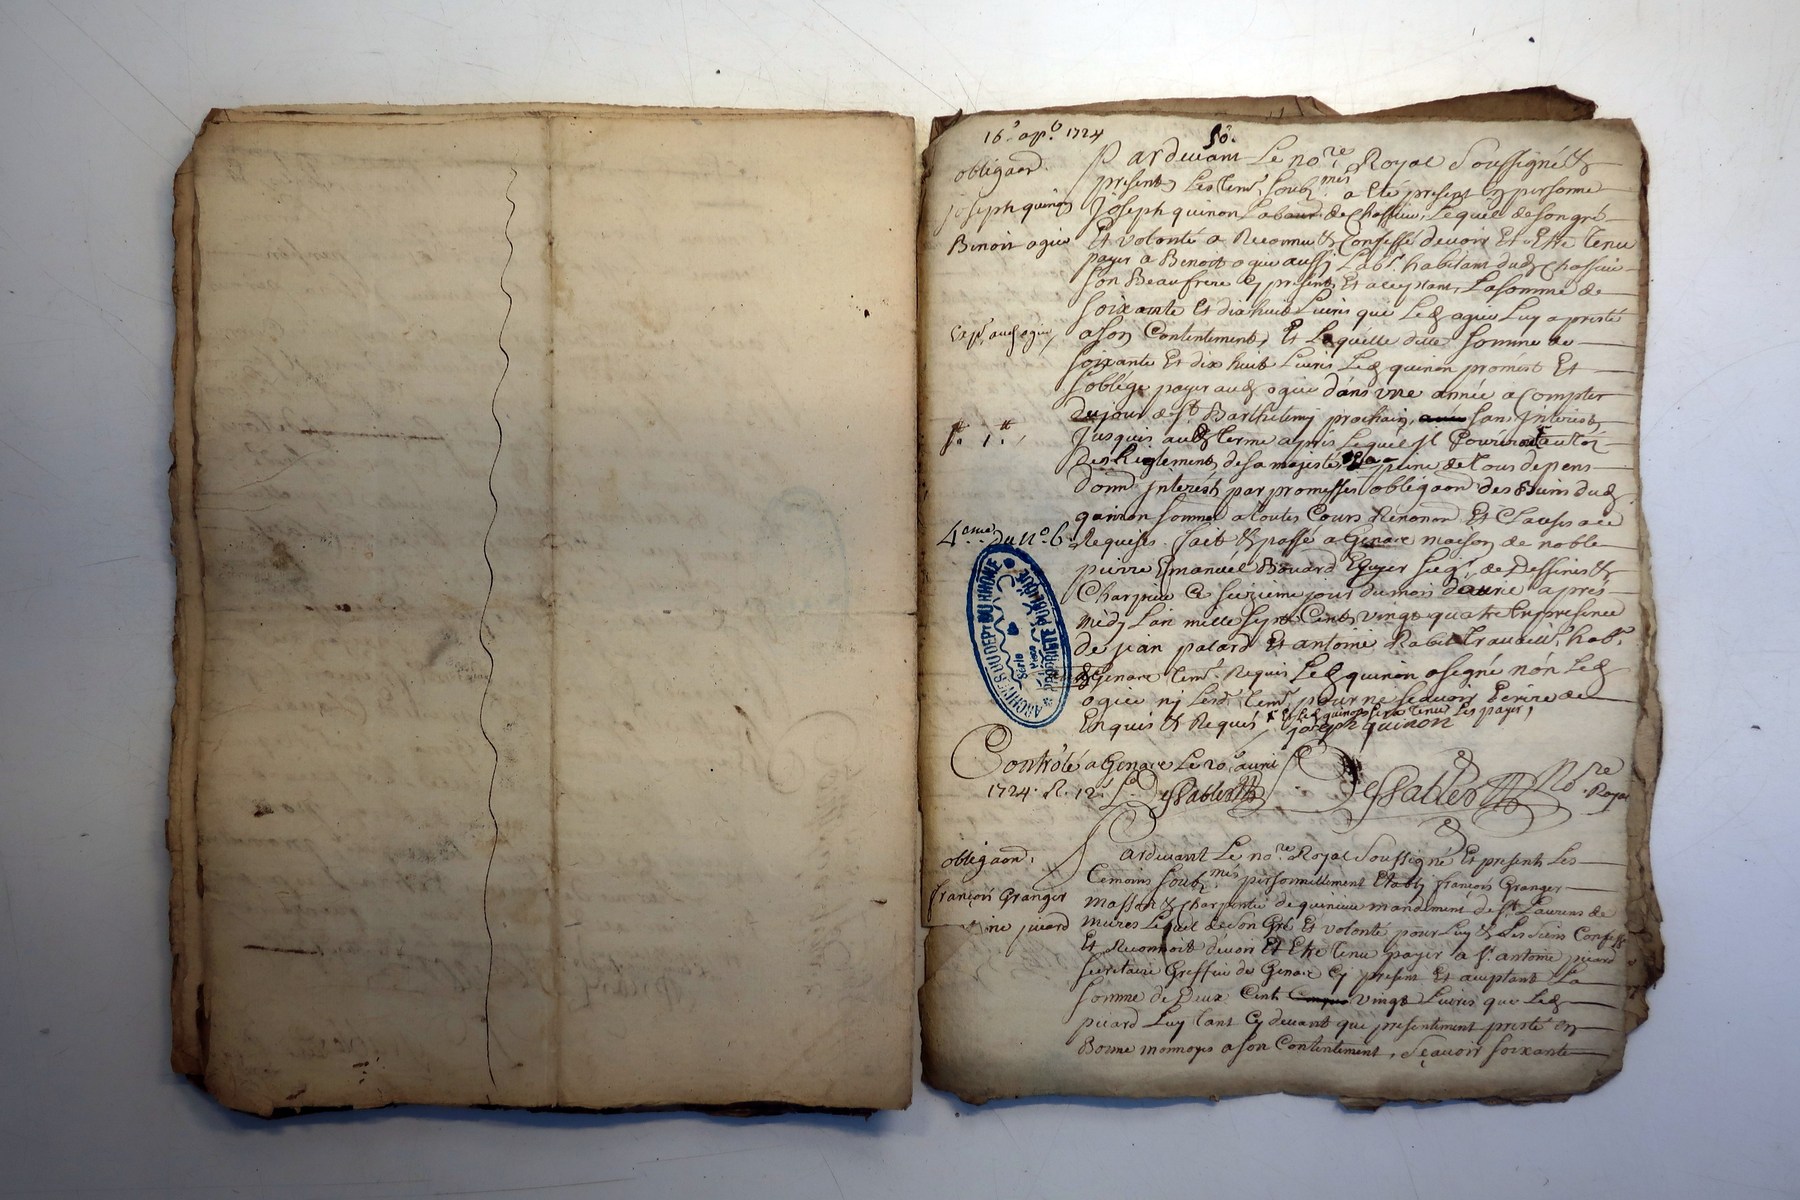 16e apl 1724
50.
obligaon.
Joseph quinon
Benoit ogier
Pardevant Le nore Royal Soussigné &
presents Les tems soubmes a Eté present En personne
Joseph quinon Labour de Chassieu, Lequel de son gré
Et volonté a Reconnu & Confessé devoir Et Etre tenu
payer a Benoit ogier aussy Labr habitant dud Chassieu
son Beaufrere Cy present Et acceptant, La somme de
soixante Et dix huit Livres que Led ogier Luy a presté
a son Contentement, Et Laquelle ditte somme de
soixante Et dix huit Livres Led quinon promet Et
s'oblige payer aud ogier dans une année a Compter
du jour de St Barthelemy prochain, sans Interests
jusques aud terme apres Lequel Il
Reglements de sa majesté peine de tous depens
dom Interests par promesses obligaon des Biens dud
quinon Somme a toutes Cours Renonon Et Clauses a ce
Requises. fait & passé a Genare maison de noble
pierre Emanuel Bouard Ecuyer Seigr de Dessines &
Charpieu Ce seizieme jour du mois apres
midy L'an mille sept Cent vingt quatre En presence
de jean palard Et antoine Rabit travaillr habt
de Genare tems Requis Led quinon a signé non Led
ogier ny Lesd tems pour ne scavoir Ecrire de
Enquis & Requis, & Led quinon sera tenu Les payer,
Joseph quinon
Expt aud ogier
1.
4eme du No 6.
ARCHIVES DU DEPT DU RHONE
REPUBLIQUE
Controlé a Genare Le 20e avril
1724. R. 12s DesSables
DesSables Nore Royal
obligaon.
françois Granger
picard
Pardevant Le nore Royal Soussigné Et presents Les
temoins soubmes personnellement Etably françois Granger
masson & Charpentier de quincieu mandement de St Laurens de
mures Lequel de son Gré Et volonté pour Luy & Les siens Confesse
Et Reconnoit devoir Et Etre tenu payer a Sr antoine picard
secretaire Greffier de Genare Cy present Et acceptant La
somme de Deux Cent vingt Livres que Led
picard Luy tant Cy devant que presentement presté En
Bonne monnoyes a son Contentement, Scavoir soixante